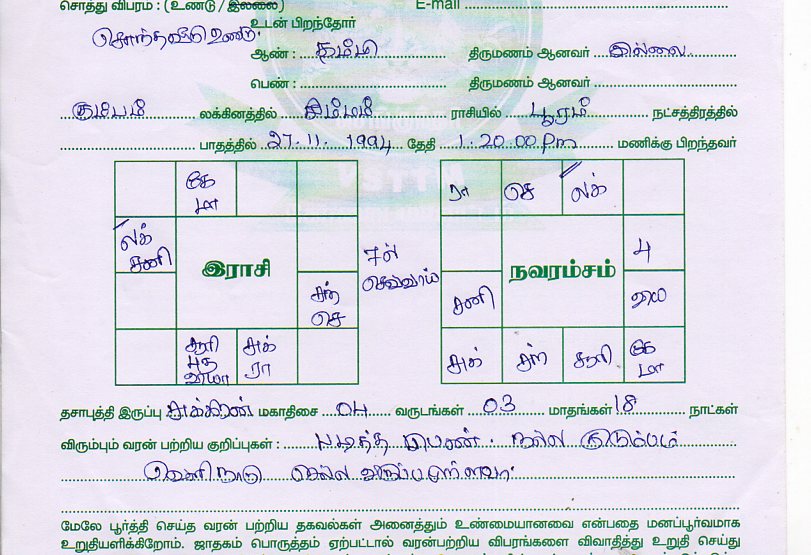 சொத்து விபரம் : (உண்டு / இல்லை) E-mail
சொந்தவீடு உண்டு.
உடன் பிறந்தோர்
ஆண் : தம்பி திருமணம் ஆனவர் இல்லை
பெண் : திருமணம் ஆனவர்
கும்பம் லக்கினத்தில் சிம்மம் ராசியில் பூரம் நட்சத்திரத்தில்
பாதத்தில் 27.11.1994 தேதி 1.20.00 Pm மணிக்கு பிறந்தவர்
கே
மா
லக்
சனி
இராசி
சந்
செ
சூரி
புத
சுக்
ரா
7ல்
செவ்வாய்
ரா செ லக்
நவரம்சம்
சனி
சுக் சந் சூரி கே
மா
தசாபுத்தி இருப்பு சுக்கிரன் மகாதிசை 04 வருடங்கள் 03 மாதங்கள் 18 நாட்கள்
விரும்பும் வரன் பற்றிய குறிப்புகள் : படித்த பெண். நல்ல குடும்பம்
வெளிநாடு செல்ல விருப்பமுள்ளவர்.
மேலே பூர்த்தி செய்த வரன் பற்றிய தகவல்கள் அனைத்தும் உண்மையானவை என்பதை மனப்பூர்வமாக
உறுதியளிக்கிறோம். ஜாதகம் பொருத்தம் ஏற்பட்டால் வரன்பற்றிய விபரங்களை விவாதித்து உறுதி செய்து